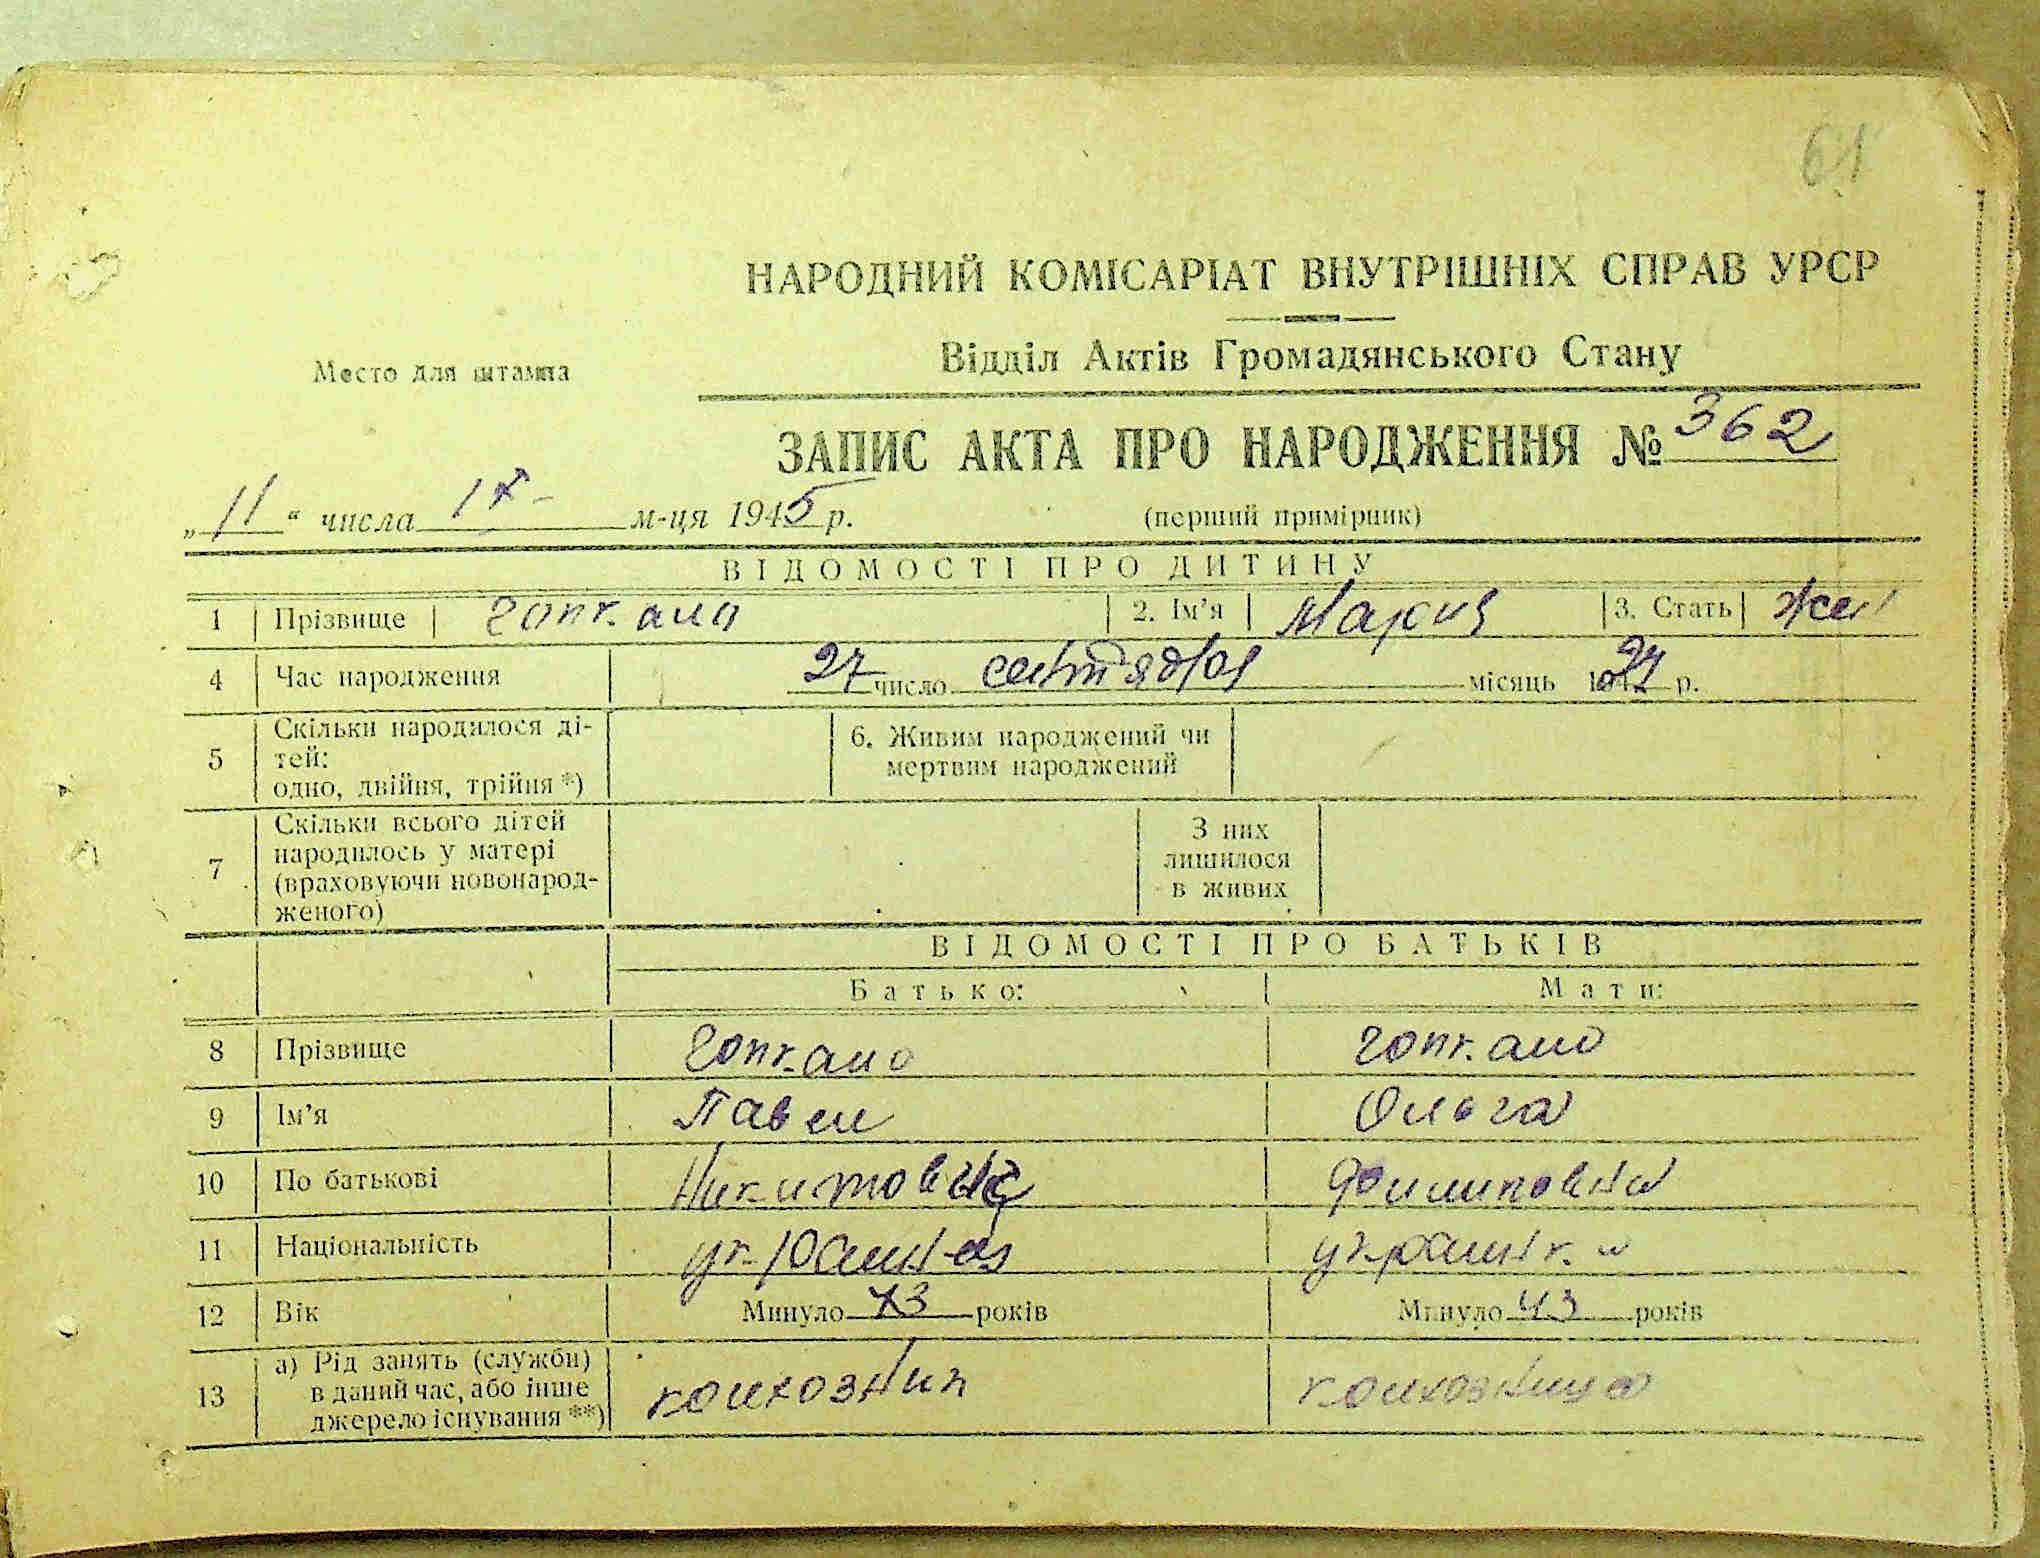 61
НАРОДНИЙ КОМІСАРІАТ ВНУТРІШНІХ СПРАВ УРСР
Відділ Актів Громадянського Стану
Место для штампа
ЗАПИС АКТА ПРО НАРОДЖЕННЯ № 362
„11“ числа IX м-ця 1945 р. (перший примірник)
ВІДОМОСТІ ПРО ДИТИНУ
1 Прізвище 2. Ім’я Мария 3. Стать жен
4 Час народження 27 число сентября місяць 1927 р.
5 Скільки народилося ді-
тей:
одно, двійня, трійня *)
6. Живим народжений чи
мертвим народжений
7 Скільки всього дітей
народилось у матері
(враховуючи новонарод-
женого)
З них
лишилося
в живих
ВІДОМОСТІ ПРО БАТЬКІВ
Батько: Мати:
8 Прізвище
9 Ім’я Павел Ольга
10 По батькові Никитович Филиповна
11 Національність украинец украинка
12 Вік Минуло 43 років Минуло 43 років
13 а) Рід занять (служби)
в даний час, або інше
джерело існування **)
колхозник колхозница